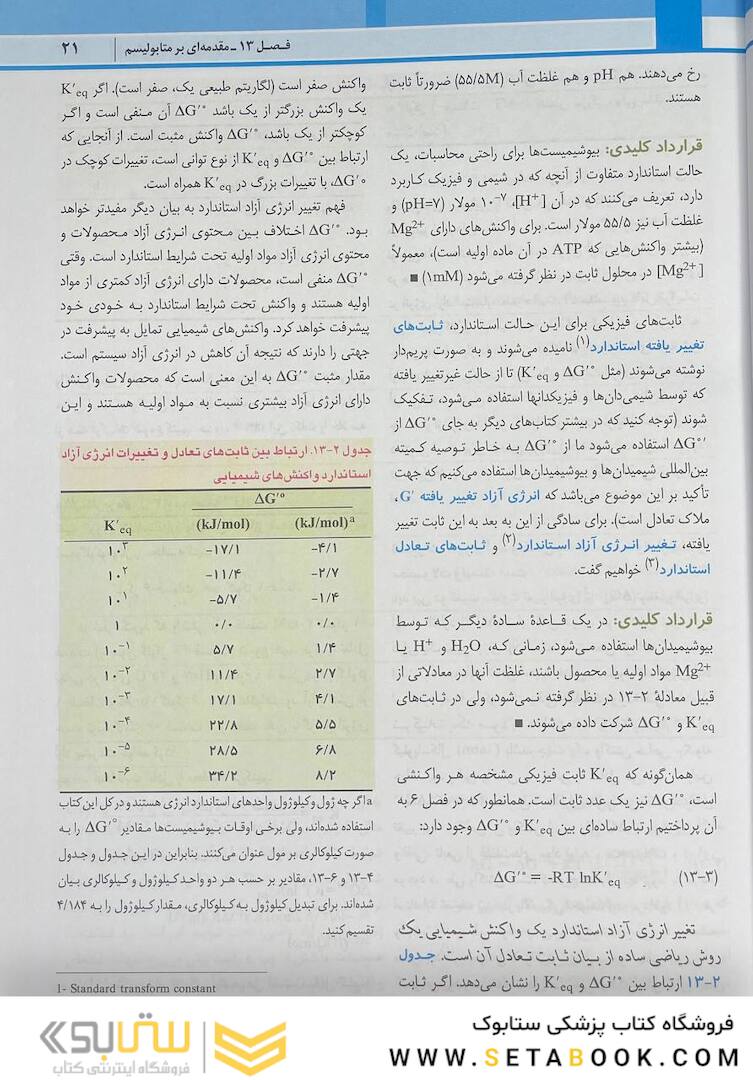 فصل ۱۳ ـ مقدمه‌ای بر متابولیسم | ۲۱
رخ می‌دهند. هم pH و هم غلظت آب (۵۵/۵M) ضرورتاً ثابت
هستند.
قرارداد کلیدی: بیوشیمیست‌ها برای راحتی محاسبات، یک
حالت استاندارد متفاوت از آنچه که در شیمی و فیزیک کاربرد
دارد، تعریف می‌کنند که در آن [H⁺]، ۱۰⁻⁷ مولار (pH=۷) و
غلظت آب نیز ۵۵/۵ مولار است. برای واکنش‌های دارای Mg²⁺
(بیشتر واکنش‌هایی که ATP در آن ماده اولیه است)، معمولاً
[Mg²⁺] در محلول ثابت در نظر گرفته می‌شود (۱mM) ■
ثابت‌های فیزیکی برای این حالت استاندارد، ثابت‌های
تغییر یافته استاندارد⁽¹⁾ نامیده می‌شوند و به صورت پریم‌دار
نوشته می‌شوند (مثل ΔG′° و K′eq) تا از حالت غیرتغییر یافته
که توسط شیمی‌دان‌ها و فیزیکدانها استفاده می‌شود، تفکیک
شوند (توجه کنید که در بیشتر کتاب‌های دیگر به جای ΔG′° از
ΔG°′ استفاده می‌شود ما از ΔG′° به خاطر توصیه کمیته
بین‌المللی شیمیدان‌ها و بیوشیمیدان‌ها استفاده می‌کنیم که جهت
تأکید بر این موضوع می‌باشد که انرژی آزاد تغییر یافته G′،
ملاک تعادل است). برای سادگی از این به بعد به این ثابت تغییر
یافته، تغییر انرژی آزاد استاندارد⁽²⁾ و ثابت‌های تعادل
استاندارد⁽³⁾ خواهیم گفت.
قرارداد کلیدی: در یک قاعدهٔ سادهٔ دیگر که توسط
بیوشیمیدان‌ها استفاده می‌شود، زمانی که، H₂O و H⁺ یا
Mg²⁺ مواد اولیه یا محصول باشند، غلظت آنها در معادلاتی از
قبیل معادلهٔ ۲-۱۳ در نظر گرفته نمی‌شود، ولی در ثابت‌های
K′eq و ΔG′° شرکت داده می‌شوند. ■
همان‌گونه که K′eq ثابت فیزیکی مشخصه هر واکنشی
است، ΔG′° نیز یک عدد ثابت است. همانطور که در فصل ۶ به
آن پرداختیم ارتباط ساده‌ای بین K′eq و ΔG′° وجود دارد:
ΔG′° = -RT lnK′eq (۱۳-۳)
تغییر انرژی آزاد استاندارد یک واکنش شیمیایی یک
روش ریاضی ساده از بیان ثابت تعادل آن است. جدول
۱۳-۲ ارتباط بین ΔG′° و K′eq را نشان می‌دهد. اگر ثابت
واکنش صفر است (لگاریتم طبیعی یک، صفر است). اگر K′eq
یک واکنش بزرگتر از یک باشد ΔG′° آن منفی است و اگر
کوچکتر از یک باشد، ΔG′° واکنش مثبت است. از آنجایی که
ارتباط بین ΔG′° و K′eq از نوع توانی است، تغییرات کوچک در
ΔG′°، با تغییرات بزرگ در K′eq همراه است.
فهم تغییر انرژی آزاد استاندارد به بیان دیگر مفیدتر خواهد
بود. ΔG′° اختلاف بین محتوی انرژی آزاد محصولات و
محتوی انرژی آزاد مواد اولیه تحت شرایط استاندارد است. وقتی
ΔG′° منفی است، محصولات دارای انرژی آزاد کمتری از مواد
اولیه هستند و واکنش تحت شرایط استاندارد به خودی خود
پیشرفت خواهد کرد. واکنش‌های شیمیایی تمایل به پیشرفت در
جهتی را دارند که نتیجه آن کاهش در انرژی آزاد سیستم است.
مقدار مثبت ΔG′° به این معنی است که محصولات واکنش
دارای انرژی آزاد بیشتری نسبت به مواد اولیه هستند و این
جدول ۲-۱۳. ارتباط بین ثابت‌های تعادل و تغییرات انرژی آزاد
استاندارد واکنش‌های شیمیایی
ΔG′°
K′eq (kJ/mol) (kJ/mol)ᵃ
۱۰³ −۱۷/۱ −۴/۱
۱۰² −۱۱/۴ −۲/۷
۱۰¹ −۵/۷ −۱/۴
۱ ۰/۰ ۰/۰
۱۰⁻¹ ۵/۷ ۱/۴
۱۰⁻² ۱۱/۴ ۲/۷
۱۰⁻³ ۱۷/۱ ۴/۱
۱۰⁻⁴ ۲۲/۸ ۵/۵
۱۰⁻⁵ ۲۸/۵ ۶/۸
۱۰⁻⁶ ۳۴/۲ ۸/۲
a اگر چه ژول و کیلوژول واحدهای استاندارد انرژی هستند و در کل این کتاب
استفاده شده‌اند، ولی برخی اوقات بیوشیمیست‌ها مقادیر ΔG′° را به
صورت کیلوکالری بر مول عنوان می‌کنند. بنابراین در این جدول و جدول
۱۳-۴ و ۶-۱۳، مقادیر بر حسب هر دو واحد کیلوژول و کیلوکالری بیان
شده‌اند. برای تبدیل کیلوژول به کیلوکالری، مقدار کیلوژول را به ۴/۱۸۴
تقسیم کنید.
1- Standard transform constant
فروشگاه کتاب پزشکی ستابوک
WWW.SETABOOK.COM
ستابوک
فروشگاه اینترنتی کتاب